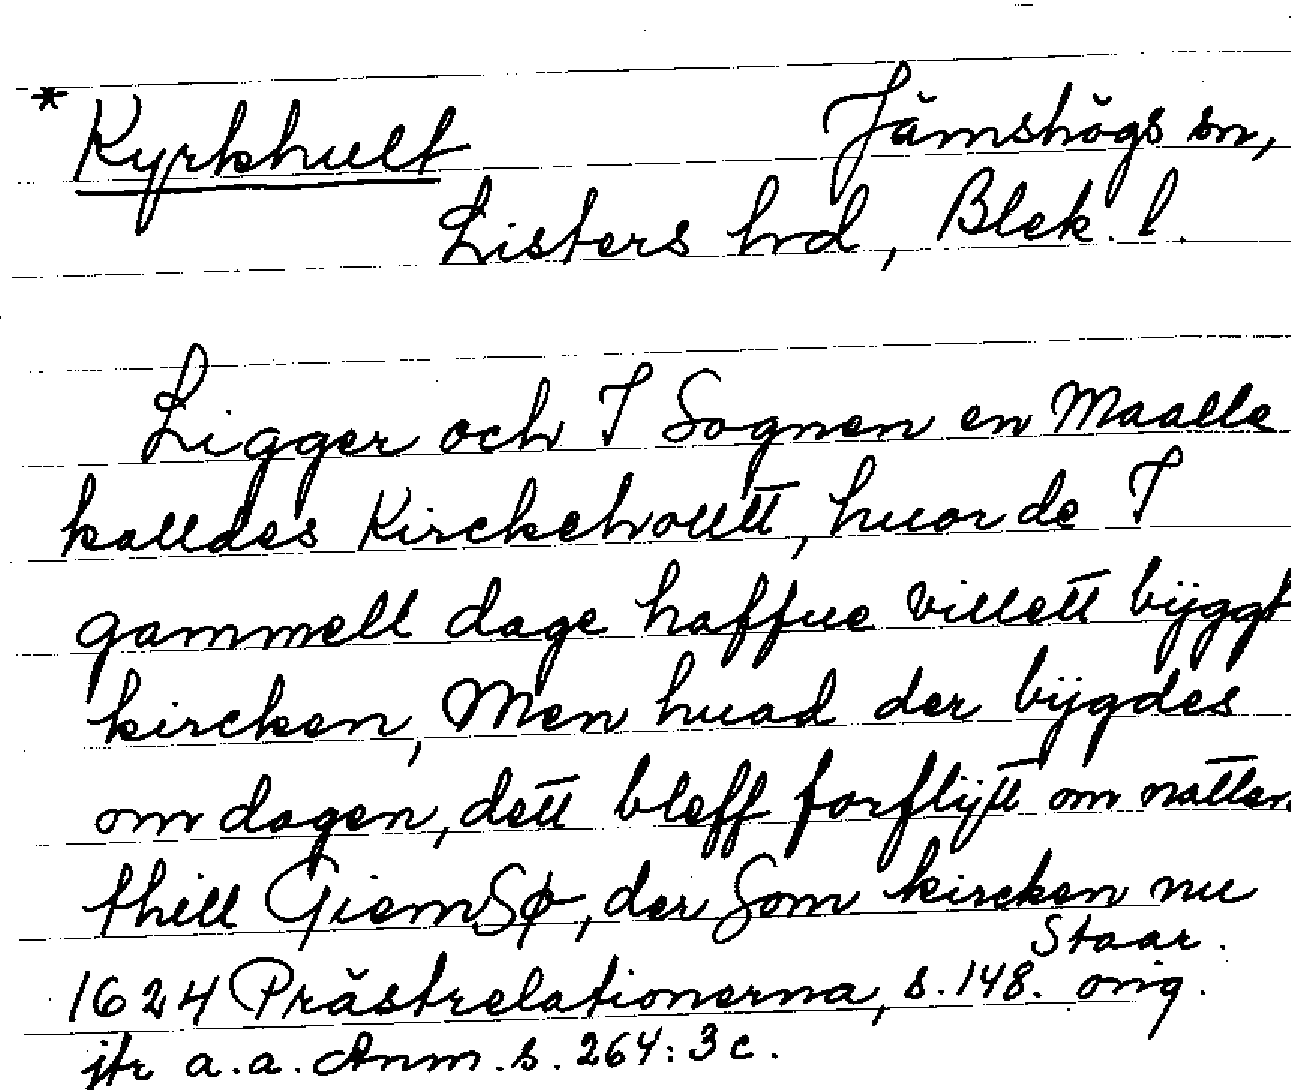 * Kyrkhult Jämshögs sn,
Listers hrd, Blek. l.
Ligger och I Sognen en Maalle
kalldes Kirckehoultt, huor de I
gammell dage haffue villett bÿggt
kircken, Men huad der bÿgdes
om dagen, dett bleff forflÿtt om natten
thill GiemSø, der Som kircken nu
Staar.
1624 Prästrelationerna, s. 148. orig.
jfr a.a. Anm. s. 264: 3 c.